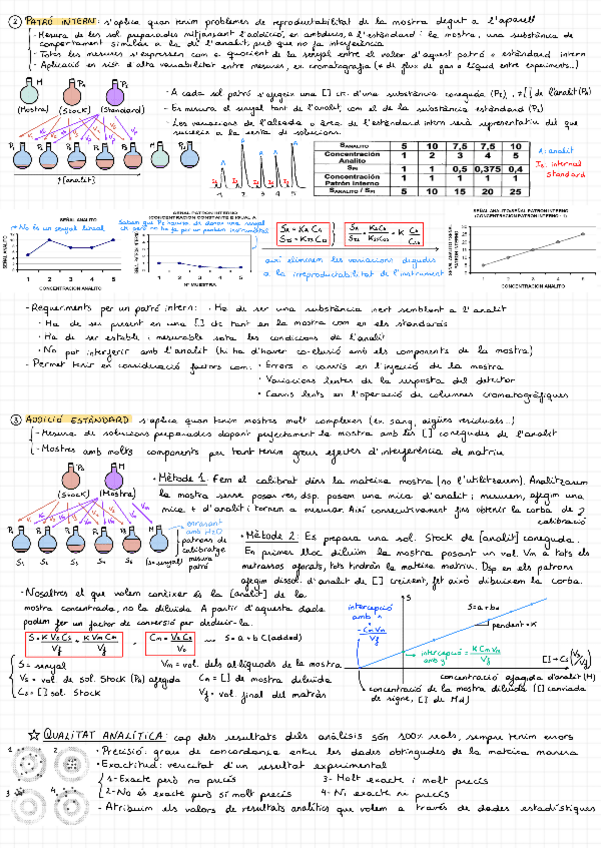 ② PATRÓ INTERN: s'aplica quan tenim problemes de reproductibilitat de la mostra degut a l'aparell
- Mesura de les sol. preparades mitjansant l'addició, en ambdues, a l'estàndard i la mostra, una substància de
comportament similar a la de l'analit, però que no fa interferència
- Totes les mesures s'expressen com a quocient de la senyal entre el valor d'aquest patró o estàndard intern
- Aplicació en risc d'alta variabilitat entre mesures, ex cromatografia (∆ de flux de gas o líquid entre experiments...)
M
(Mostra)
(Stock)
(Standard)
- A cada sol patró s'afegeix una [] ct. d'una substància coneguda (PI), i ≠[] de l'analit (PA)
- Es mesura el senyal tant de l'analit, com el de la substància estàndard (PI)
- Les variacions de l'alçada o àrea de l'estàndard intern serà representatiu del que
succeeix a la sèrie de solucions.
↑[analit]
1 2 3 4 5
S ANALITO 5 10 7,5 7,5 10
Concentración Analito 1 2 3 4 5
S PI 1 1 0,5 0,375 0,4
Concentración Patrón interno 1 1 1 1 1
S ANALITO / S PI 5 10 15 20 25
A: analit
Is: internal
standard
SEÑAL ANALITO
→ No és un senyal lineal
SEÑAL ANALITO
1 2 3 4 5
CONCENTRACION ANALITO
SEÑAL PATRON INTERNO
(CONCENTRACION CONSTANTE E IGUAL A
1 2 3 4 5
Nº MUESTRA
així eliminem les variacions degudes
a la irreproductibilitat de l'instrument
SEÑAL ANALITO/SEÑAL PATRON INTERNO
(CONCENTRACION PATRON INTERNO = 1)
1 2 3 4 5
CONCENTRACION ANALITO
- Requeriments per un patró intern: · Ha de ser una substància
semblant a l'analit
· Ha de ser present en una [] ct tant en la mostra com en els standards
· Ha de ser estable i mesurable sota les condicions de l'analit
· No pot interferir amb l'analit (hi ha d'haver co-elusió amb els components de la mostra)
- Permet tenir en consideració factors com: · Errors o canvis en l'injecció de la mostra
· Variacions lentes de la resposta del detector
· Canvis lents en l'operació de columnes cromatogràfiques
③ ADDICIÓ ESTÀNDARD s'aplica quan tenim mostres molt complexes (ex. sang, aigües residuals...)
- Mesura de solucions preparades dopant perfectament la mostra amb les [] conegudes de l'analit
- Mostres amb molts components per tant tenim greus efectes d'interferència de matriu
M
(Stock)
(Mostra)
• Mètode 1: Fem el calibrat dins la mateixa mostra (no l'utilitzarem). Analitzarem
la mostra sense posar res, dsp. posem una mica d'analit i mesurem, afegim una
mica + d'analit i tornem a mesurar. Així consecutivament fins obtenir la corba de
calibració
S1 S2 S3 S4 S5 (S=senyal)
enrasant
amb H2O
patrons de
calibratge
mesura
patró
• Mètode 2: Es prepara una sol. Stock de [analit] coneguda.
En primer lloc diluïm la mostra posant un vol. Vm a tots els
matrassos aforats, tots tindràn la mateixa matriu. Dsp en els patrons
afegim dissol. d'analit de [] creixent, fet això dibuixem la corba.
- Nosaltres el que volem conèixer és la [analit] de la
mostra concentrada, no la diluïda. A partir d'aquesta dada
podem fer un factor de conversió per deduir-la.
S = K Vs Cs / Vf + K Vm Cm / Vf
S = a + b C(added)
S = senyal
Vs = vol. de sol. Stock (PA) afegida
Cs = [] sol. Stock
Vm = vol. dels alíquods de la mostra
Cm = [] de mostra diluïda
Vf = vol. final del matràs
S
S = a + b x
pendent = K
intercepció
amb x
= - Cm Vm / Vf
intercepció
amb y
= K Cm Vm / Vf
[] → Cs (Vs/Vf)
concentració afegida d'analit (M)
concentració de la mostra diluïda ([] canviada
de signe, [] de Md)
☆ QUALITAT ANALÍTICA: cap dels resultats dels anàlisis són 100% reals, sempre tenim errors
• Precisió: grau de concordança entre les dades obtingudes de la mateixa manera
• Exactitud: veracitat d'un resultat experimental
1- Exacte però no precís
3- Molt exacte i molt precís
2- No és exacte però sí molt precís
4- Ni exacte ni precís
- Atribuïm els valors de resultats analítics que volem a través de dades estadístiques
1 2
3 4